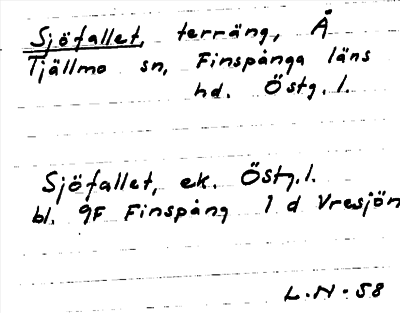 Sjöfallet, terräng, Å
Tjällmo sn, Finspånga läns
hd. Östg. l.
Sjöfallet, ek. Östg. l.
bl. 9F Finspång 1 d Vresjön
L.N-58